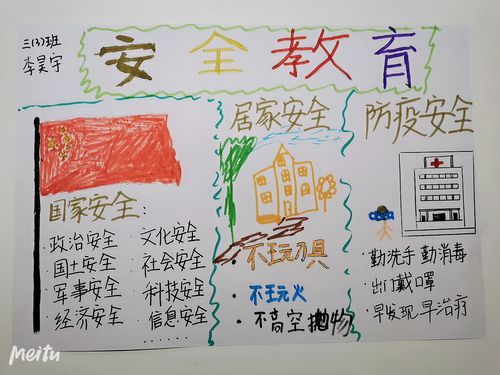 三(3)班
李昊宇
安全教育
国家安全:
·政治安全 文化安全
·国土安全 社会安全
·军事安全 科技安全
·经济安全 信息安全
......
居家安全
·不玩刀具
·不玩火
·不高空抛物
防疫安全
·勤洗手 勤消毒
·出门戴口罩
·早发现 早治疗
Meitu